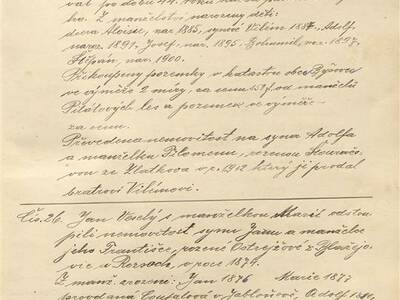 val po dobu 44 roků
ba. Z manželství narozeny děti:
dcera Aloisie, nar. 1885, synové Vilém 1887, Adolf
naroz. 1891, Josef, nar. 1895, Bohumil, nar. 1897,
Štěpán, nar. 1900.
Přikoupeny pozemky v katastru obce
ve výměře 2 míry, za cenu od manželů
Pilátových les a pozemek ve výměře
za cenu.
Převedena nemovitost na syna Adolfa
a manželku Filomenu, rozenou
vou ze Zlatkova v r. 1912 který ji prodal
bratrovi Vilémovi.
Čís. 26. Jan Veselý s manželkou Marií odstou-
pili nemovitost synu Janu a manželce
jeho Františce, rozené Ostrejžové z Blažejo-
vic v Rozsoch, v roce 1874.
Z manž. zrozeni: Jan 1876 Marie 1877
provdaná Coufalová v Jabloňově, Adolf